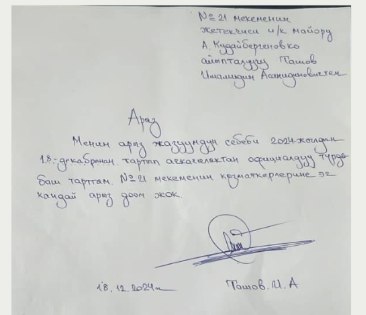 № 21 мекеменин
жетекчиси и/к майору
А. Кудайбергеновко
айыпталуучу Ташов
Имамидин Асамидинович тен
Арыз
Менин арыз жазуумдун себеби 2024-жылдын
18-декабрынан тартып ачкачылыктан официалдуу түрдө
баш тарттам. № 21 мекеменин кызматкерлерине эч
кандай арыз доом жок.
18.12.2024-ж Ташов. И. А